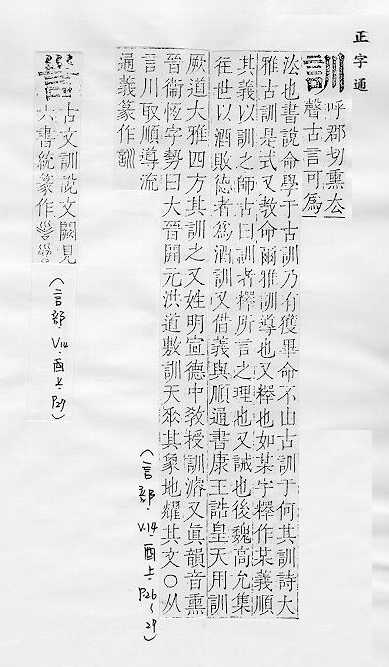 正字通
訓 呼郡切熏去
聲古言可為
法也書說命學于古訓乃有獲畢命不由古訓于何其訓詩大
雅古訓是式又教命爾雅訓導也又釋也如某字釋作某義順
其義以訓之師古曰訓者釋所言之理也又誡也後魏高允集
往世以酒敗德者為酒訓又借義與順通書康王誥皇天用訓
厥道大雅四方其訓之又姓明宣德中敎授訓濬又眞韻音熏
晉衞恆字勢曰大晉開元洪道敷訓天垂其象地耀其文○从
言川取順導流
通義篆作訓
(言部.V.14.酉上.P26~29)
古文訓說文闕見
六書統篆作
(言部 V14.酉上.P27)